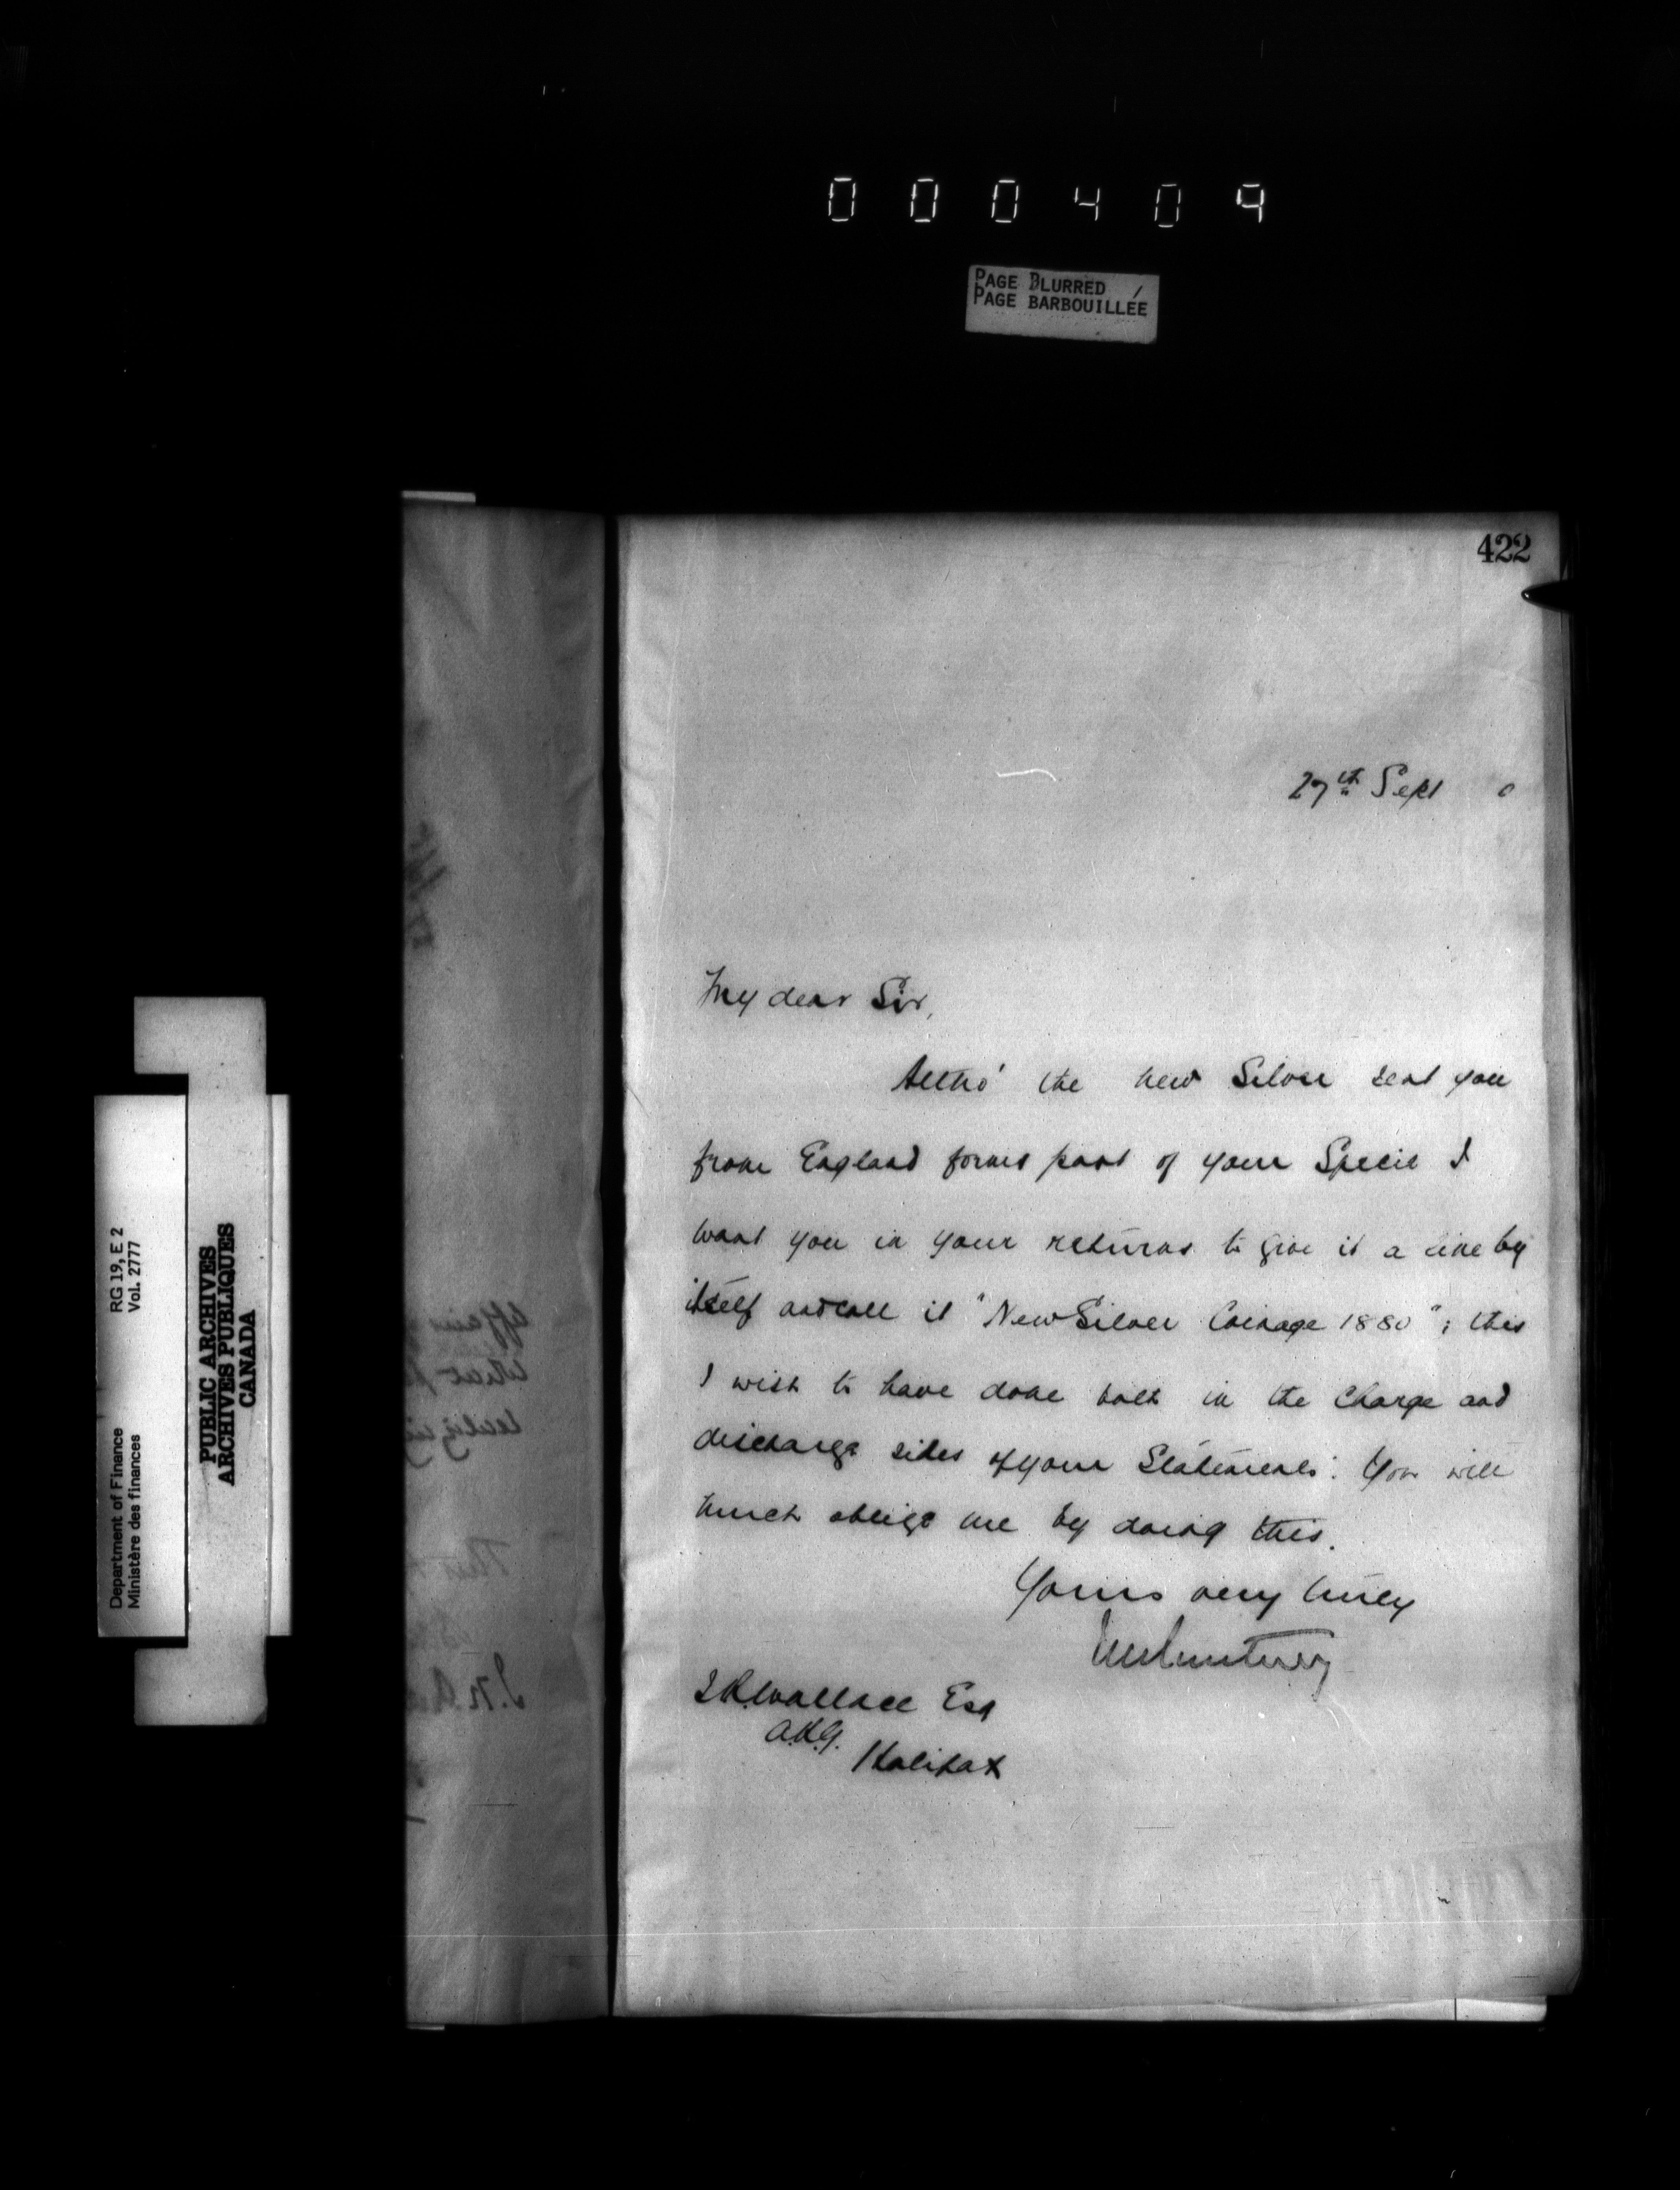 000409
PAGE BLURRED /
PAGE BARBOUILLÉE
422
27th Sept 0
My dear Sir,
Altho' the new Silver sent you
from England forms part of your Specie I
want you in your returns to give it a line by
itself and call it "New Silver Coinage 1880"; this
I wish to have done both in the Charge and
discharge sides of your Statements. You will
much oblige me by doing this.
Yours very truly
Wallace Esq
A.R.G.
Halifax
RG 19, E 2
Vol. 2777
Department of Finance
Ministère des finances
PUBLIC ARCHIVES
ARCHIVES PUBLIQUES
CANADA